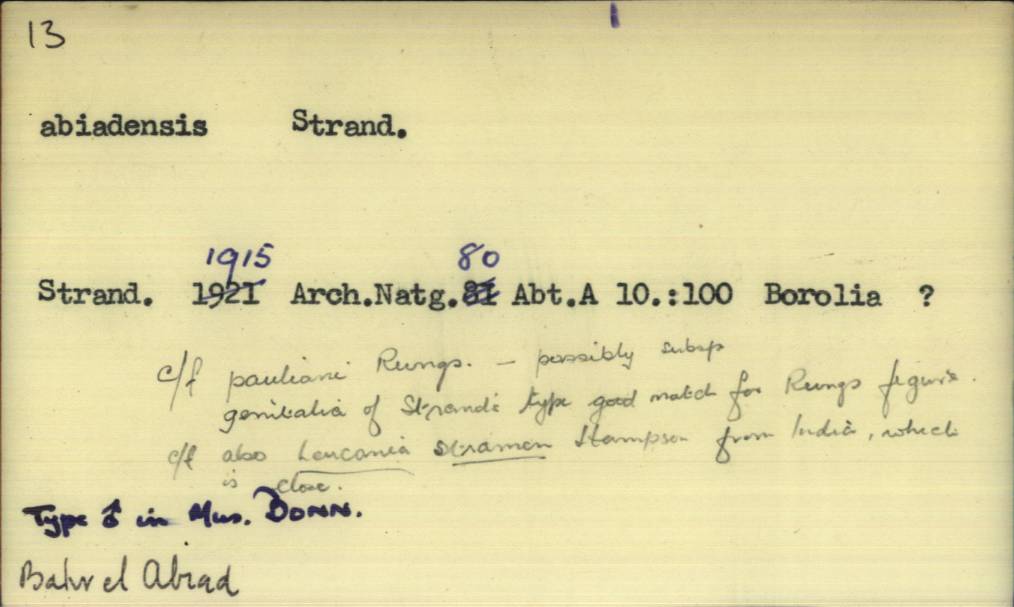 13
abiadensis Strand.
1915 80
Strand. 1921 Arch.Natg.81 Abt.A 10.:100 Borolia ?
c/f pauliani Rungs. - possibly subsp
genitalia of Strand's type good match for Rungs figure.
c/f also Leucania stramen Hampson from India, which
is close.
Type ♂ in Mus. BONN.
Bahr el Abiad